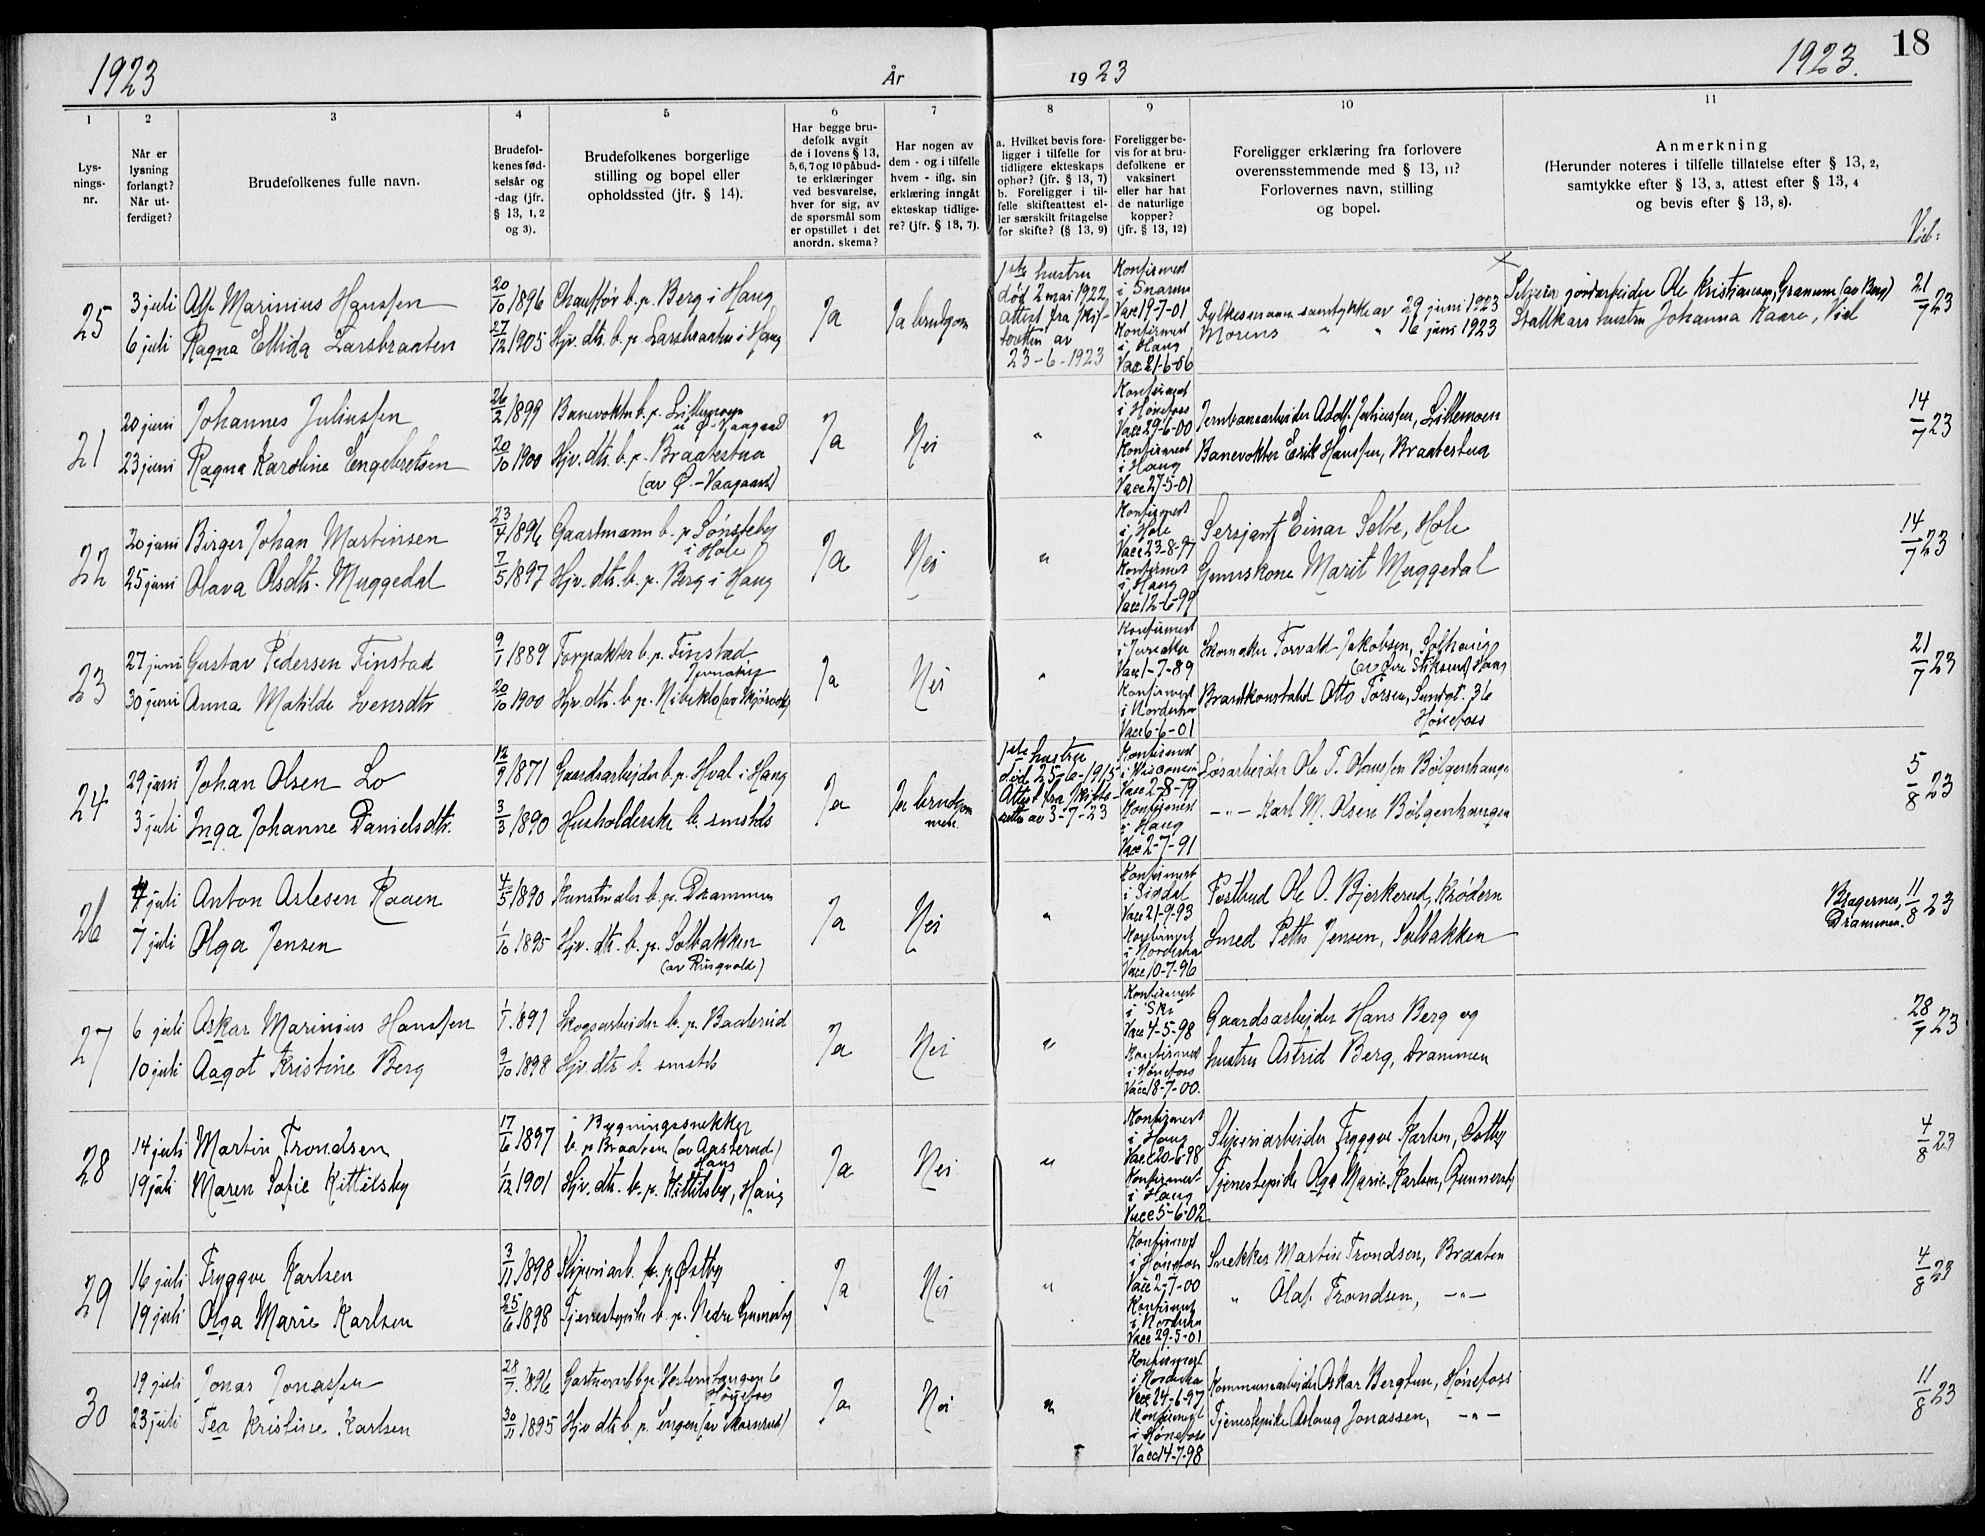 1923
År
19 23
1923.
18
1
2
3
4
5
6
7
8
9
10
11
Lys-
nings-
nr.
Når er
lysning
forlangt?
Når ut-
ferdiget?
Brudefolkenes fulle navn.
Brudefol-
kenes fød-
selsår og
-dag (jfr.
§ 13, 1, 2
og 3).
Brudefolkenes borgerlige
stilling og bopel eller
opholdssted (jfr. § 14).
Har begge bru-
defolk avgit
de i lovens § 13,
5, 6, 7 og 10 påbud-
te erklæringer
ved besvarelse,
hver for sig, av
de spørsmål som
er opstillet i det
anordn. skema?
Har nogen av
dem - og i tilfelle
hvem - iflg. sin
erklæring inngåt
ekteskap tidlige-
re? (jfr. § 13, 7).
a. Hvilket bevis fore-
ligger i tilfelle for
tidligere ekteskaps
ophør? (jfr. § 13, 7)
b. Foreligger i til-
felle skifteattest el-
ler særskilt fritagelse
for skifte? (§ 13, 9)
Foreligger be-
vis for at bru-
defolkene er
vaksinert
eller har hat
de naturlige
kopper?
(jfr. § 13, 12)
Foreligger erklæring fra forlovere
overensstemmende med § 13, 11?
Forlovernes navn, stilling
og bopel.
Anmerkning
(Herunder noteres i tilfelle tillatelse efter § 13, 2,
samtykke efter § 13, 3, attest efter § 13, 4
og bevis efter § 13, 8).
Viet:
25
3 juli
6 juli
Alf Marinius Hanssen
Ragna Ellida Larsbraaten
20/10 1896
27/12 1905
Chauffør b. p. Berg i Haug
Hjv. dtr. b. p. Larsbraaten i Haug
Ja
Ja brudgom
1ste hustru
død 2 mai 1922
attest fra skif-
teretten av
23-6-1923
Konfirmert
i Snarum
Vacc 19-7-01
Konfirmert
i Haug
Vacc 21-6-06
Fylkesmanns samtykke av 29 juni 1923
Morens " " 16 juni 1923
jordarbeider Ole Kristiansen, Granum (av Berg)
Stallkars hustru Johanna Kaare, Viul
21/7 23
21
20 juni
23 juni
Johannes Juliussen
Ragna Karoline Engebretsen
26/2 1899
20/10 1900
Banevokter b. p. Lillemoen
Ø. Vaagaard
Hjv. dtr. b. p. Braatestua
(av Ø.-Vaagaard)
Ja
Nei
"
Konfirmert
i Hønefoss
Vacc 29-6-00
Konfirmert
i Haug
Vacc 27-5-01
Jernbanearbeider Adolf Juliussen, Lillemoen
Banevokter Erik Hanssen, Braatestua
14/7 23
22
20 juni
25 juni
Birger Johan Martinsen
Olava Olsdtr. Muggedal
23/4 1896
7/5 1897
Gaartmann b. p. Sønsteby
i Hole
Hjv. dtr. b. p. Berg i Haug
Ja
Nei
"
Konfirmert
i Hole
Vacc 23-8-97
Konfirmert
i Haug
Vacc 12-6-99
Sersjant Einar Selte, Hole
Marit Muggedal
14/7 23
23
27 juni
30 juni
Gustav Pedersen Finstad
Anna Matilde Svensdtr
9/1 1889
20/10 1900
Forpakter b. p. Finstad
Jevnaker
Hjv. dtr. b. p.
Ja
Nei
"
Konfirmert
i Jevnaker
Vacc 1-7-89
Konfirmert
i Norderhov
Vacc 6-6-01
Skomaker Torvald Jakobsen, Solhaug
Haug
Brandkonstabel Otto Torsen, Sundgt. 36
Hønefoss
21/7 23
24
29 juni
3 juli
Johan Olsen Lo
Inga Johanne Danielsdtr.
12/9 1871
3/3 1890
Gaardsarbeider b. p. Hval i Haug
Husholderske b. smstds
Ja
Ja brudgom
men
1ste hustru
død 25-6-1915
Attest fra skifte-
retten av 3-7-23
Konfirmert
Vacc 2-8-79
Konfirmert
i Haug
Vacc 2-7-91
Løsarbeider Ole T. Bølgenhaugen
-"- Karl M. Olsen Bølgenhaugen
5/8 23
26
4 juli
7 juli
Anton Aslesen Raaen
Olga Jensen
4/5 1890
1/10 1895
Kunstmaler b. p. Drammen
Hjv. dtr. b. p. Solbakken
(av Ringvold)
Ja
Nei
"
Konfirmert
i Sigdal
Vacc 21-9-93
Konfirmert
i Norderhov
Vacc 10-7-96
Postbud Ole O. Bjerkerud, Krødern
Smed Petter Jensen, Solbakken
Bragernes,
Drammen.
11/8 23
27
6 juli
10 juli
Oskar Marinius Hanssen
Aagot Kristine Berg
1/7 1891
9/10 1898
Skogsarbeider b. p. Baaterud
Hjv. dtr. b. smstds
Ja
Nei
"
Konfirmert
i Ski
Vacc 4-5-98
Konfirmert
i Hønefoss
Vacc 18-7-00.
Gaardsarbeider Hans Berg og
hustru Astrid Berg, Drammen
28/7 23
28
14 juli
19 juli
Martin Trondsen
Maren Sofie Kittilsby
17/6 1897
1/12 1901
Bygningssnekker
b. p. Braaten (av Aasterud)
Haug
Hjv. dtr. b. p. Kittilsby, Haug
Ja
Nei
"
Konfirmert
i Haug
Vacc 20-6-98
Konfirmert
i Haug
Vacc 5-6-02
Sliperiarbeider Tryggve Karlsen, Østby
Tjenestepike Olga Marie Karlsen, Gunnersby
4/8 23
29
16 juli
19 juli
Tryggve Karlsen
Olga Marie Karlsen
3/11 1898
25/6 1898
Sliperiarb. b. p. Østby
Tjenestepike b. p. Nedre Gunnersby
Ja
Nei
"
Konfirmert
i Hønefoss
Vacc 2-7-00
Konfirmert
i Norderhov
Vacc 29-5-01
Snekker Martin Trondsen, Braaten
" Olaf Trondsen, -"-
4/8 23
30
19 juli
23 juli
Jonas Jonassen
Tea Kristine Karlsen
28/7 1896
30/11 1895
Gartnerarb. b. p. Vesterntangen 6
Hønefoss
Hjv dtr b. p. Engen
Ja
Nei
"
Konfirmert
i Norderhov
Vacc 24-6-97
Konfirmert
i Hønefoss
Vacc 14-7-98
Kommunearbeider Oskar Bergtun, Hønefoss
Tjenestepike Aslaug Jonassen, -"-
11/8 23